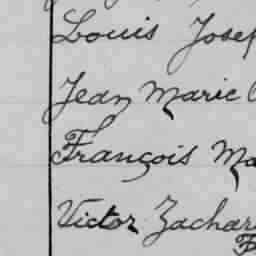 Louis Josep
Jean Marie
François Ma
Victor Zachar